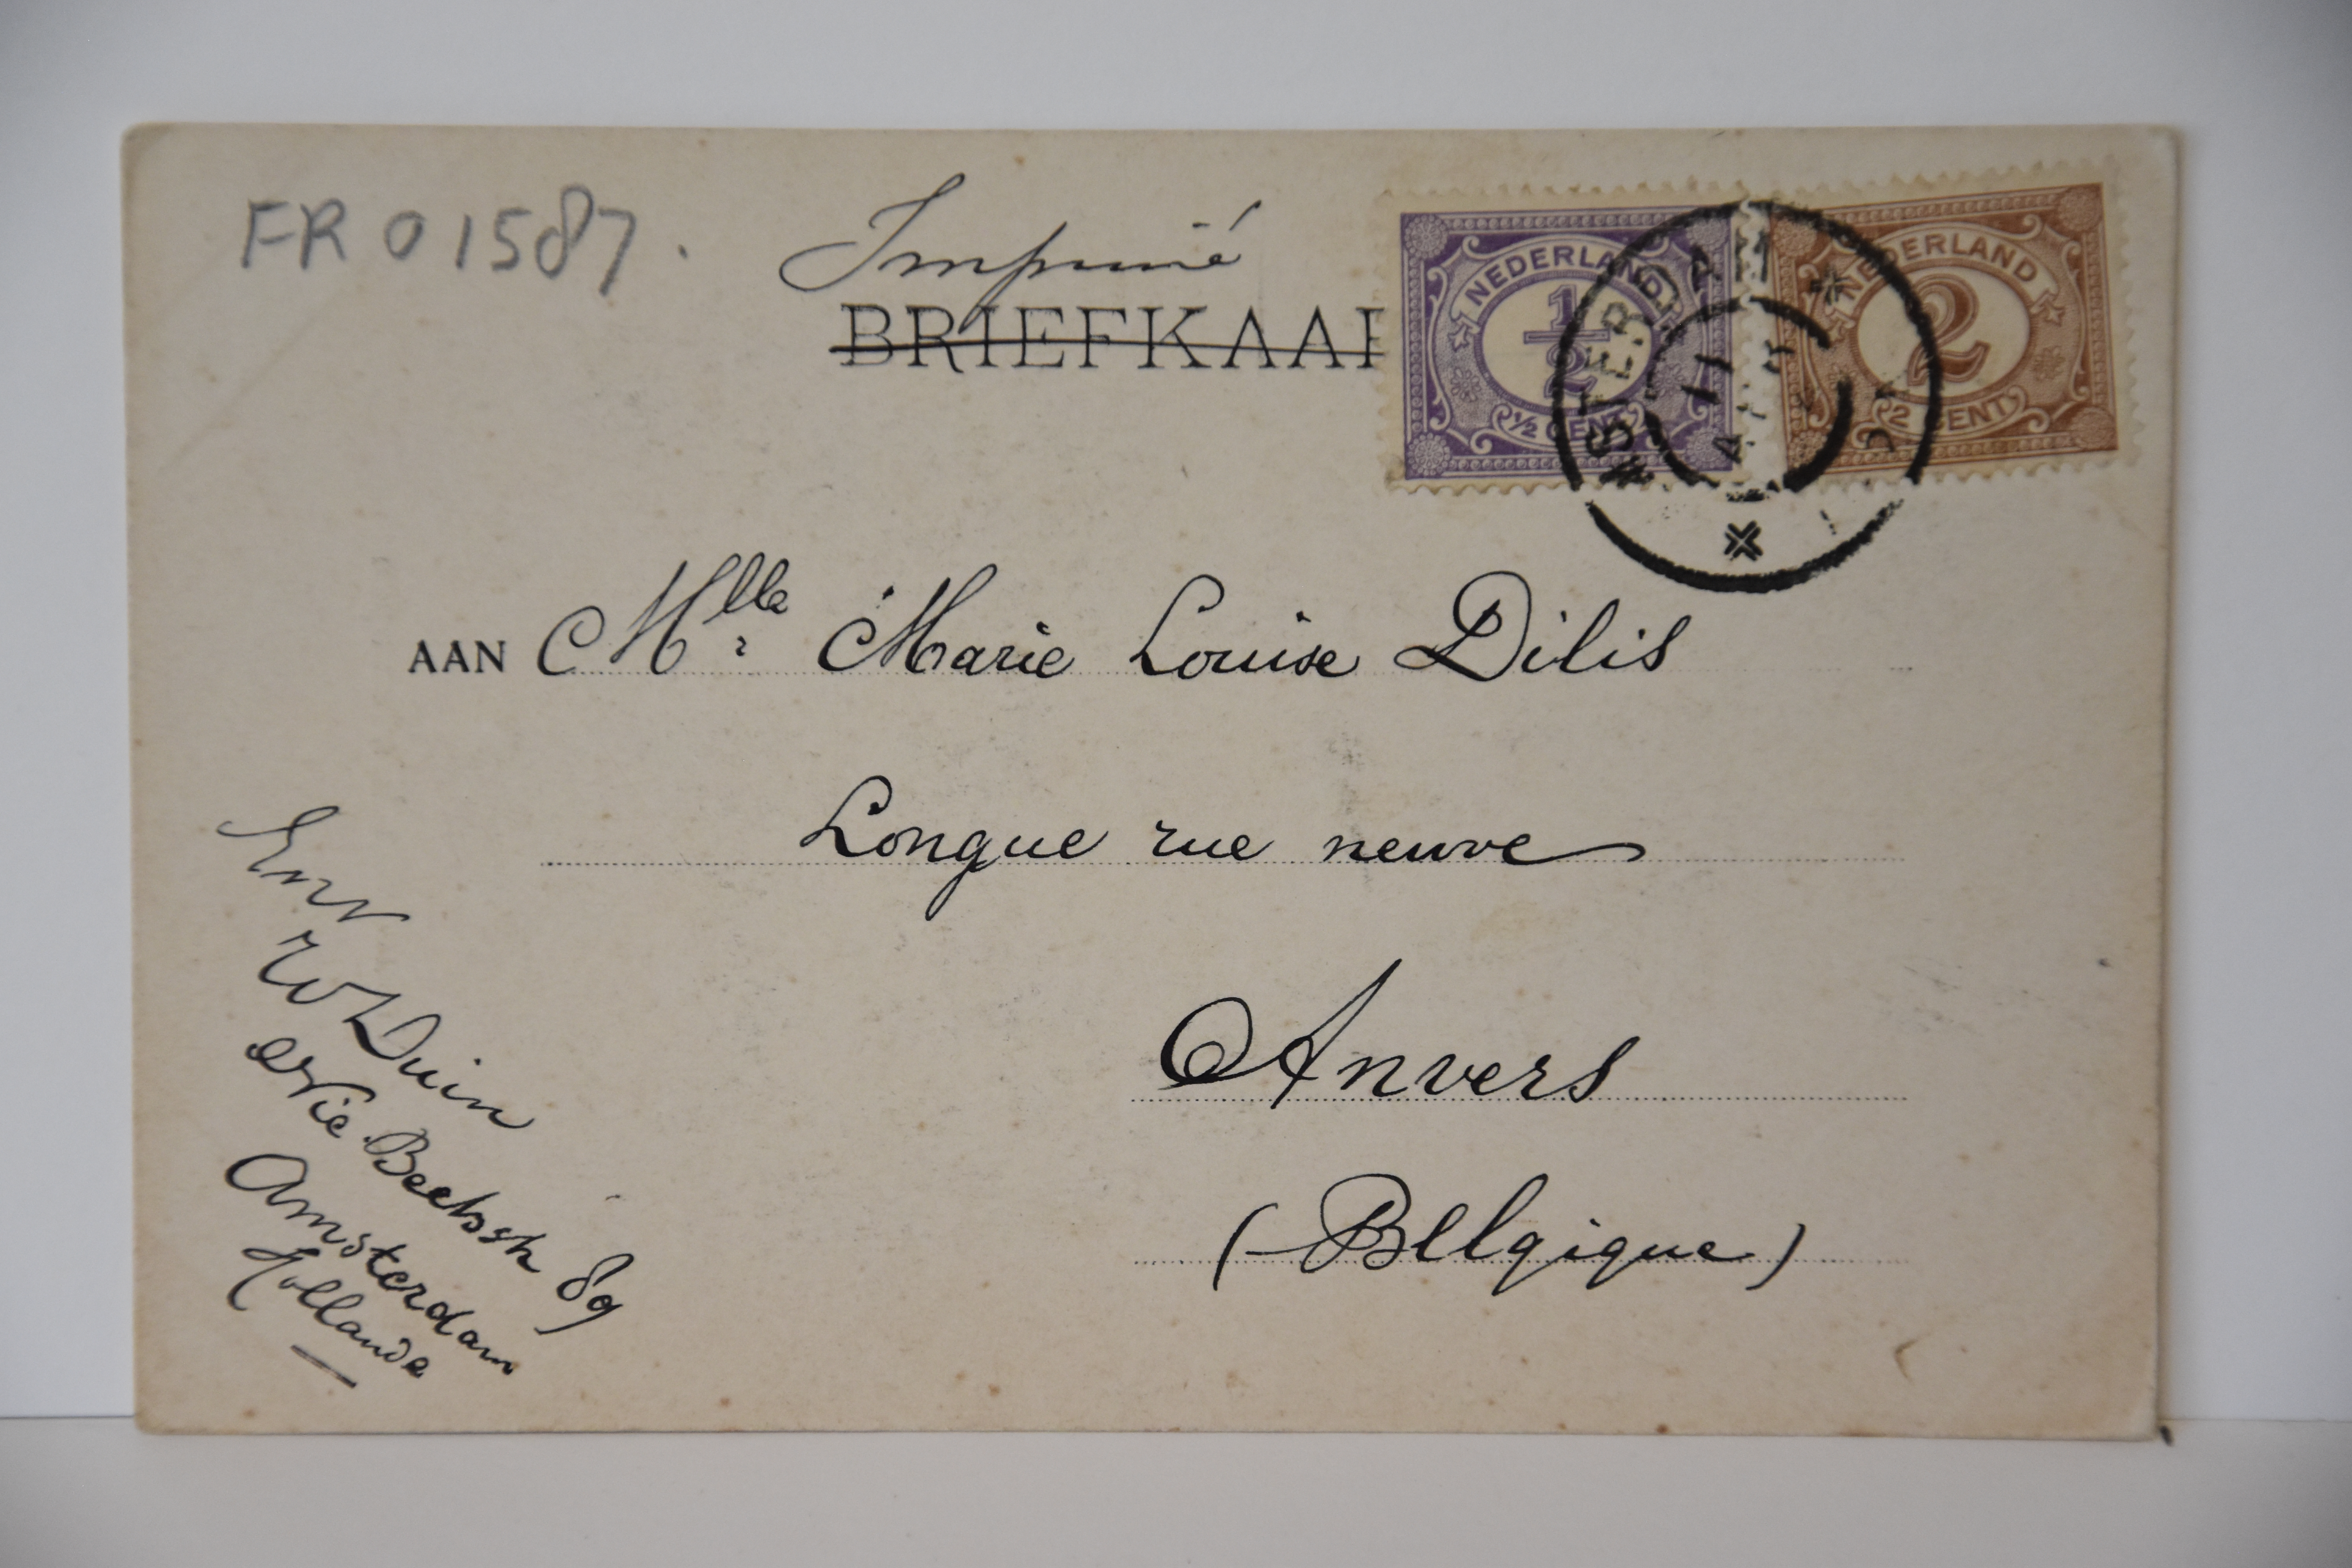 FR 01587.
Imprimé
BRIEFKAAR
NEDERLAND
1/2
1/2 CENT
NEDERLAND
2
2 CENT
AMSTERDAM
11
AAN Mlle Marie Louise Dilis
Longue rue neuve
Anvers
(Belgique)
Env
W Duin
2de Nic. Beetsstr 89
Amsterdam
Hollande